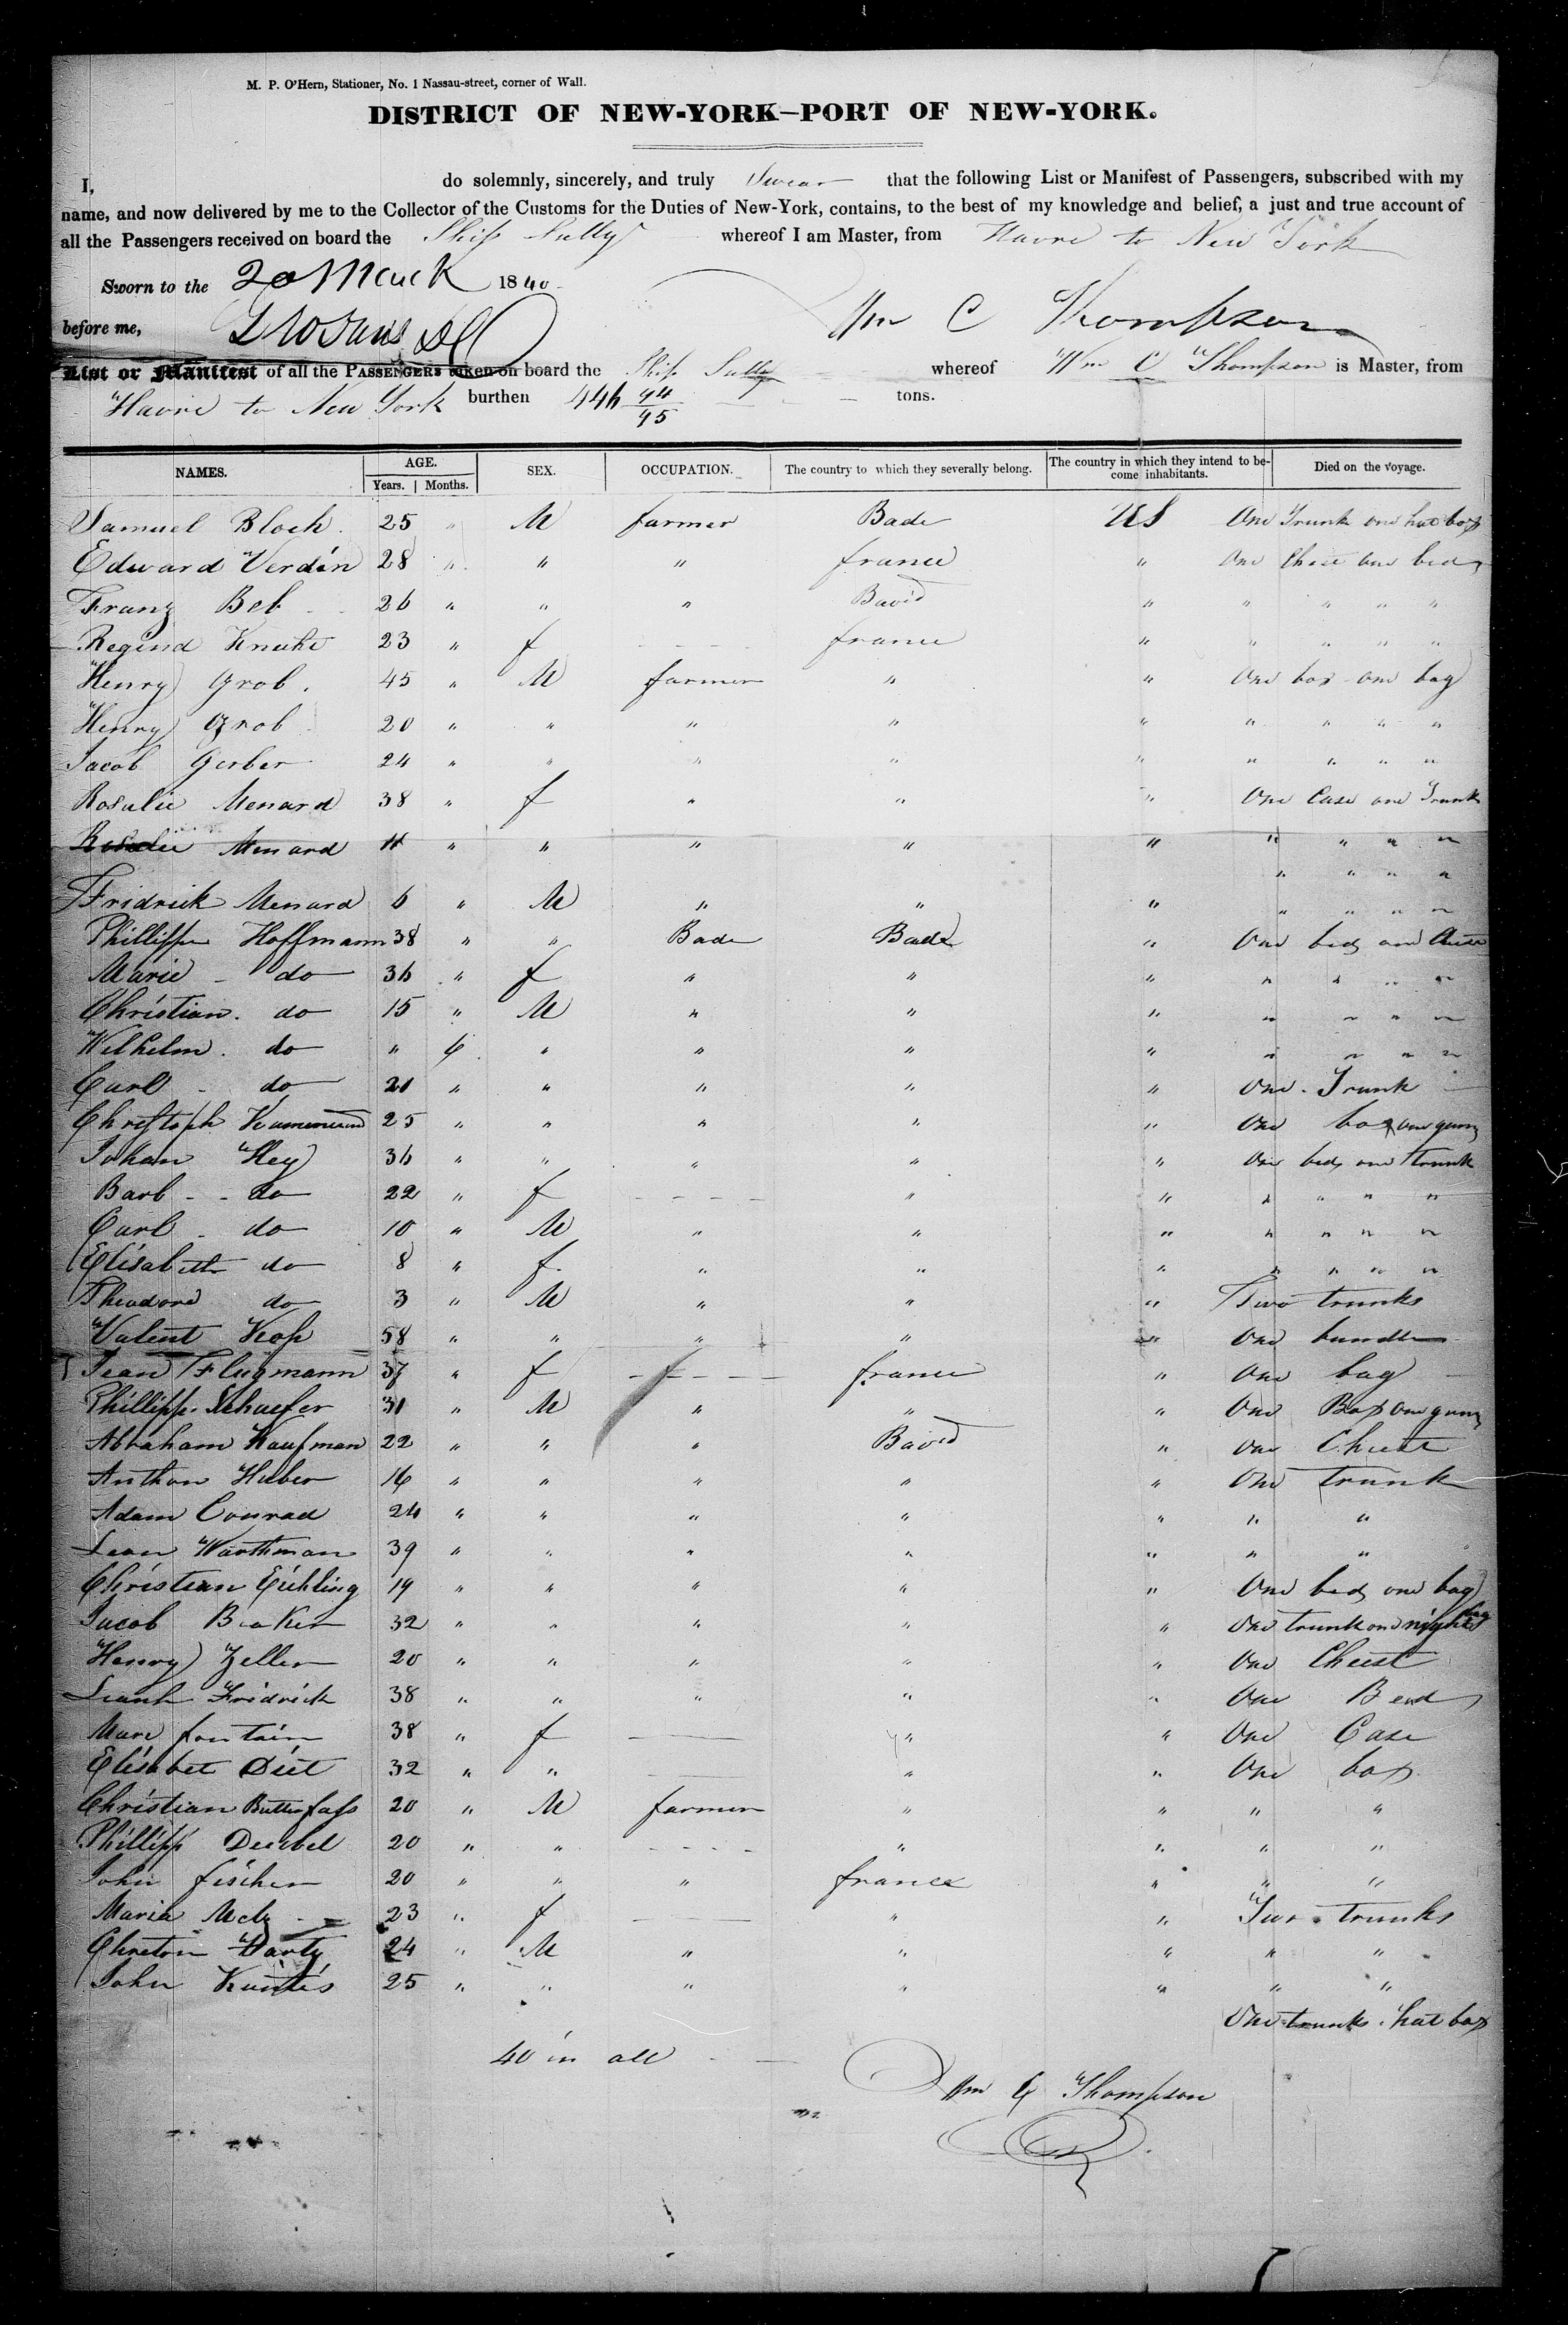 M. P. O'Hern, Stationer, No. 1 Nassau-street, corner of Wall.
DISTRICT OF NEW-YORK—PORT OF NEW-YORK.
I, do solemnly, sincerely, and truly Swear that the following List or Manifest of Passengers, subscribed with my
name, and now delivered by me to the Collector of the Customs for the Duties of New-York, contains, to the best of my knowledge and belief, a just and true account of
all the Passengers received on board the Ship Sully whereof I am Master, from Havre to New York
Sworn to the 20 March 1840
before me, Wm C Thompson
List or Manifest of all the PASSENGERS taken on board the Ship Sully whereof Wm C Thompson is Master, from
Havre to New York burthen 446 94/95 tons.
NAMES. AGE. SEX. OCCUPATION. The country to which they severally belong. The country in which they intend to become inhabitants. Died on the voyage.
Years. Months.
Samuel Bloch 25 " M farmer Bade US One Trunk one hat box
Edward Verdin 28 " " " france " One Chest one bed
Franz Beb 26 " " " " " " " "
Regina 23 " f - - - - france " " " " "
Henry Grob 45 " M farmer " " One box one bag
Henry Grob 20 " " " " " " " " "
Jacob Gerber 24 " " " " " " " " "
Rosalie Menard 38 " f " " " One Case one Trunk
Rosalie Menard 11 " " " " " " " " "
" " " "
Fridrick Menard 6 " M " " " " " " "
Phillippe Hoffmann 38 " " Bade Bade " One bed one Chest
Marie - do 36 " f " " " " " " "
Christian. do 15 " M " " " " " " "
Wilhelm. do " 6 " " " " " " " "
Carl - do 21 " " " " " One - Trunk
Christoph 25 " " " " " One box one gun
Johan Hey 36 " " " " " One bed one trunk
Barb - - do 22 " f - - - - " " " " " "
Carl - do 10 " M " " " " " " "
Elisabeth do 8 " f " " " " " " "
Theodore do 3 " M " " " Two trunks
Valent Kop 58 " " " " " One bundle
Jean Flugmann 37 " f - - - - - france " One bag
Phillipp Schaefer 31 " M " " " One Box one gun
Abraham Kaufman 22 " " " " One Chest
Anthon Huber 16 " " " " " One trunk
Adam Conrad 24 " " " " " " "
Leon Warthman 39 " " " " " " "
Christian Eichling 19 " " " " " One bed one bag
Jacob Beaker 32 " " " " " One trunk one night bag
Henry Zeller 20 " " " " " One Chest
Fridrick 38 " " " " " One Bed
Mare fontain 38 " f — " " One Case
Elisabet Diet 32 " " — " " One box
Christian Butterfass 20 " M farmer " " " "
Phillipp Deubel 20 " " - - - - " " " "
John fischer 20 " " " france " " "
Maria Metz 23 " f — " " Two trunks
Harty 24 " M " " " " "
John Kuntis 25 " " " " " " "
One trunks. hat box
40 in all
Wm C Thompson